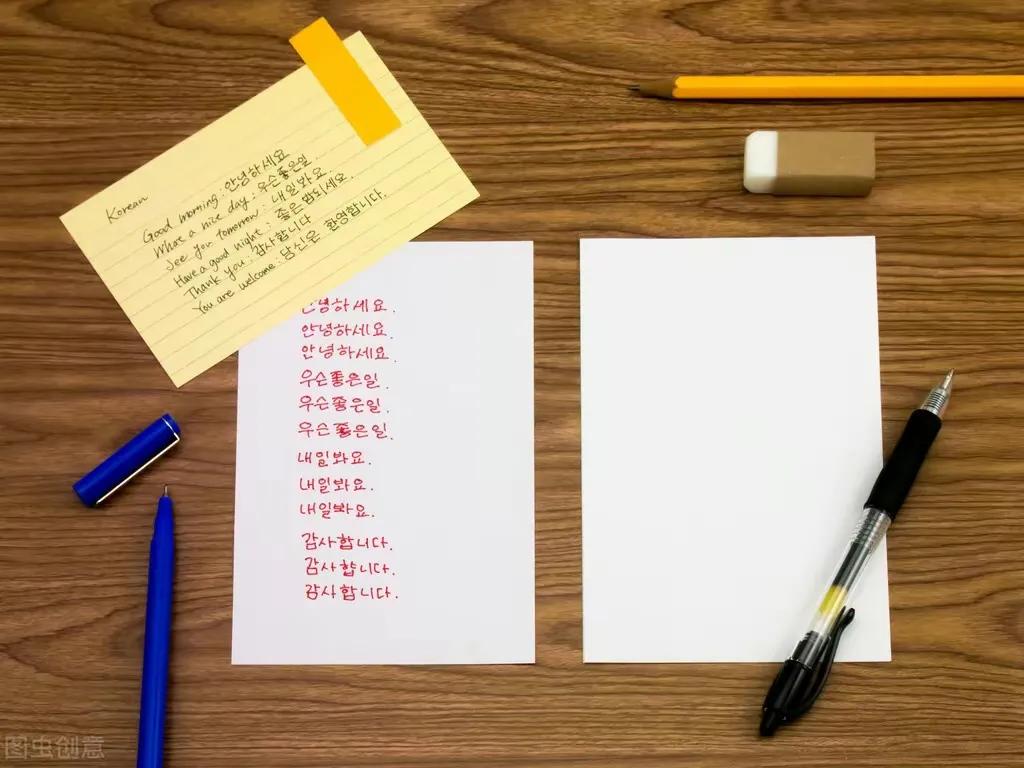 Korean
Good morning : 안녕하세요
What a nice day : 우슨좋은일.
See you tomorrow : 내일봐요.
Have a good night : 좋은밤되세요.
Thank you : 감사합니다
You are welcome : 당신은 환영합니다.
안녕하세요.
안녕하세요.
안녕하세요.
우슨좋은일.
우슨좋은일.
우슨좋은일.
내일봐요.
내일봐요.
내일봐요.
감사합니다.
감사합니다.
감사합니다.
图虫创意